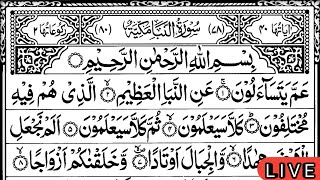 اٰیاتها ٤٠ (٧٨) سُوْرَةُ النَّبَإِ مَكِّيَّةٌ (٨٠) رکوعاتها ٢
بِسْمِ اللّٰهِ الرَّحْمٰنِ الرَّحِيْمِ
عَمَّ يَتَسَآءَلُوْنَ ① عَنِ النَّبَاِ الْعَظِيْمِ ② الَّذِيْ هُمْ فِيْهِ
مُخْتَلِفُوْنَ ③ كَلَّا سَيَعْلَمُوْنَ ④ ثُمَّ كَلَّا سَيَعْلَمُوْنَ ⑤ اَلَمْ نَجْعَلِ
الْاَرْضَ مِهٰدًا ⑥ وَّالْجِبَالَ اَوْتَادًا ⑦ وَّخَلَقْنٰكُمْ اَزْوَاجًا ⑧
LIVE